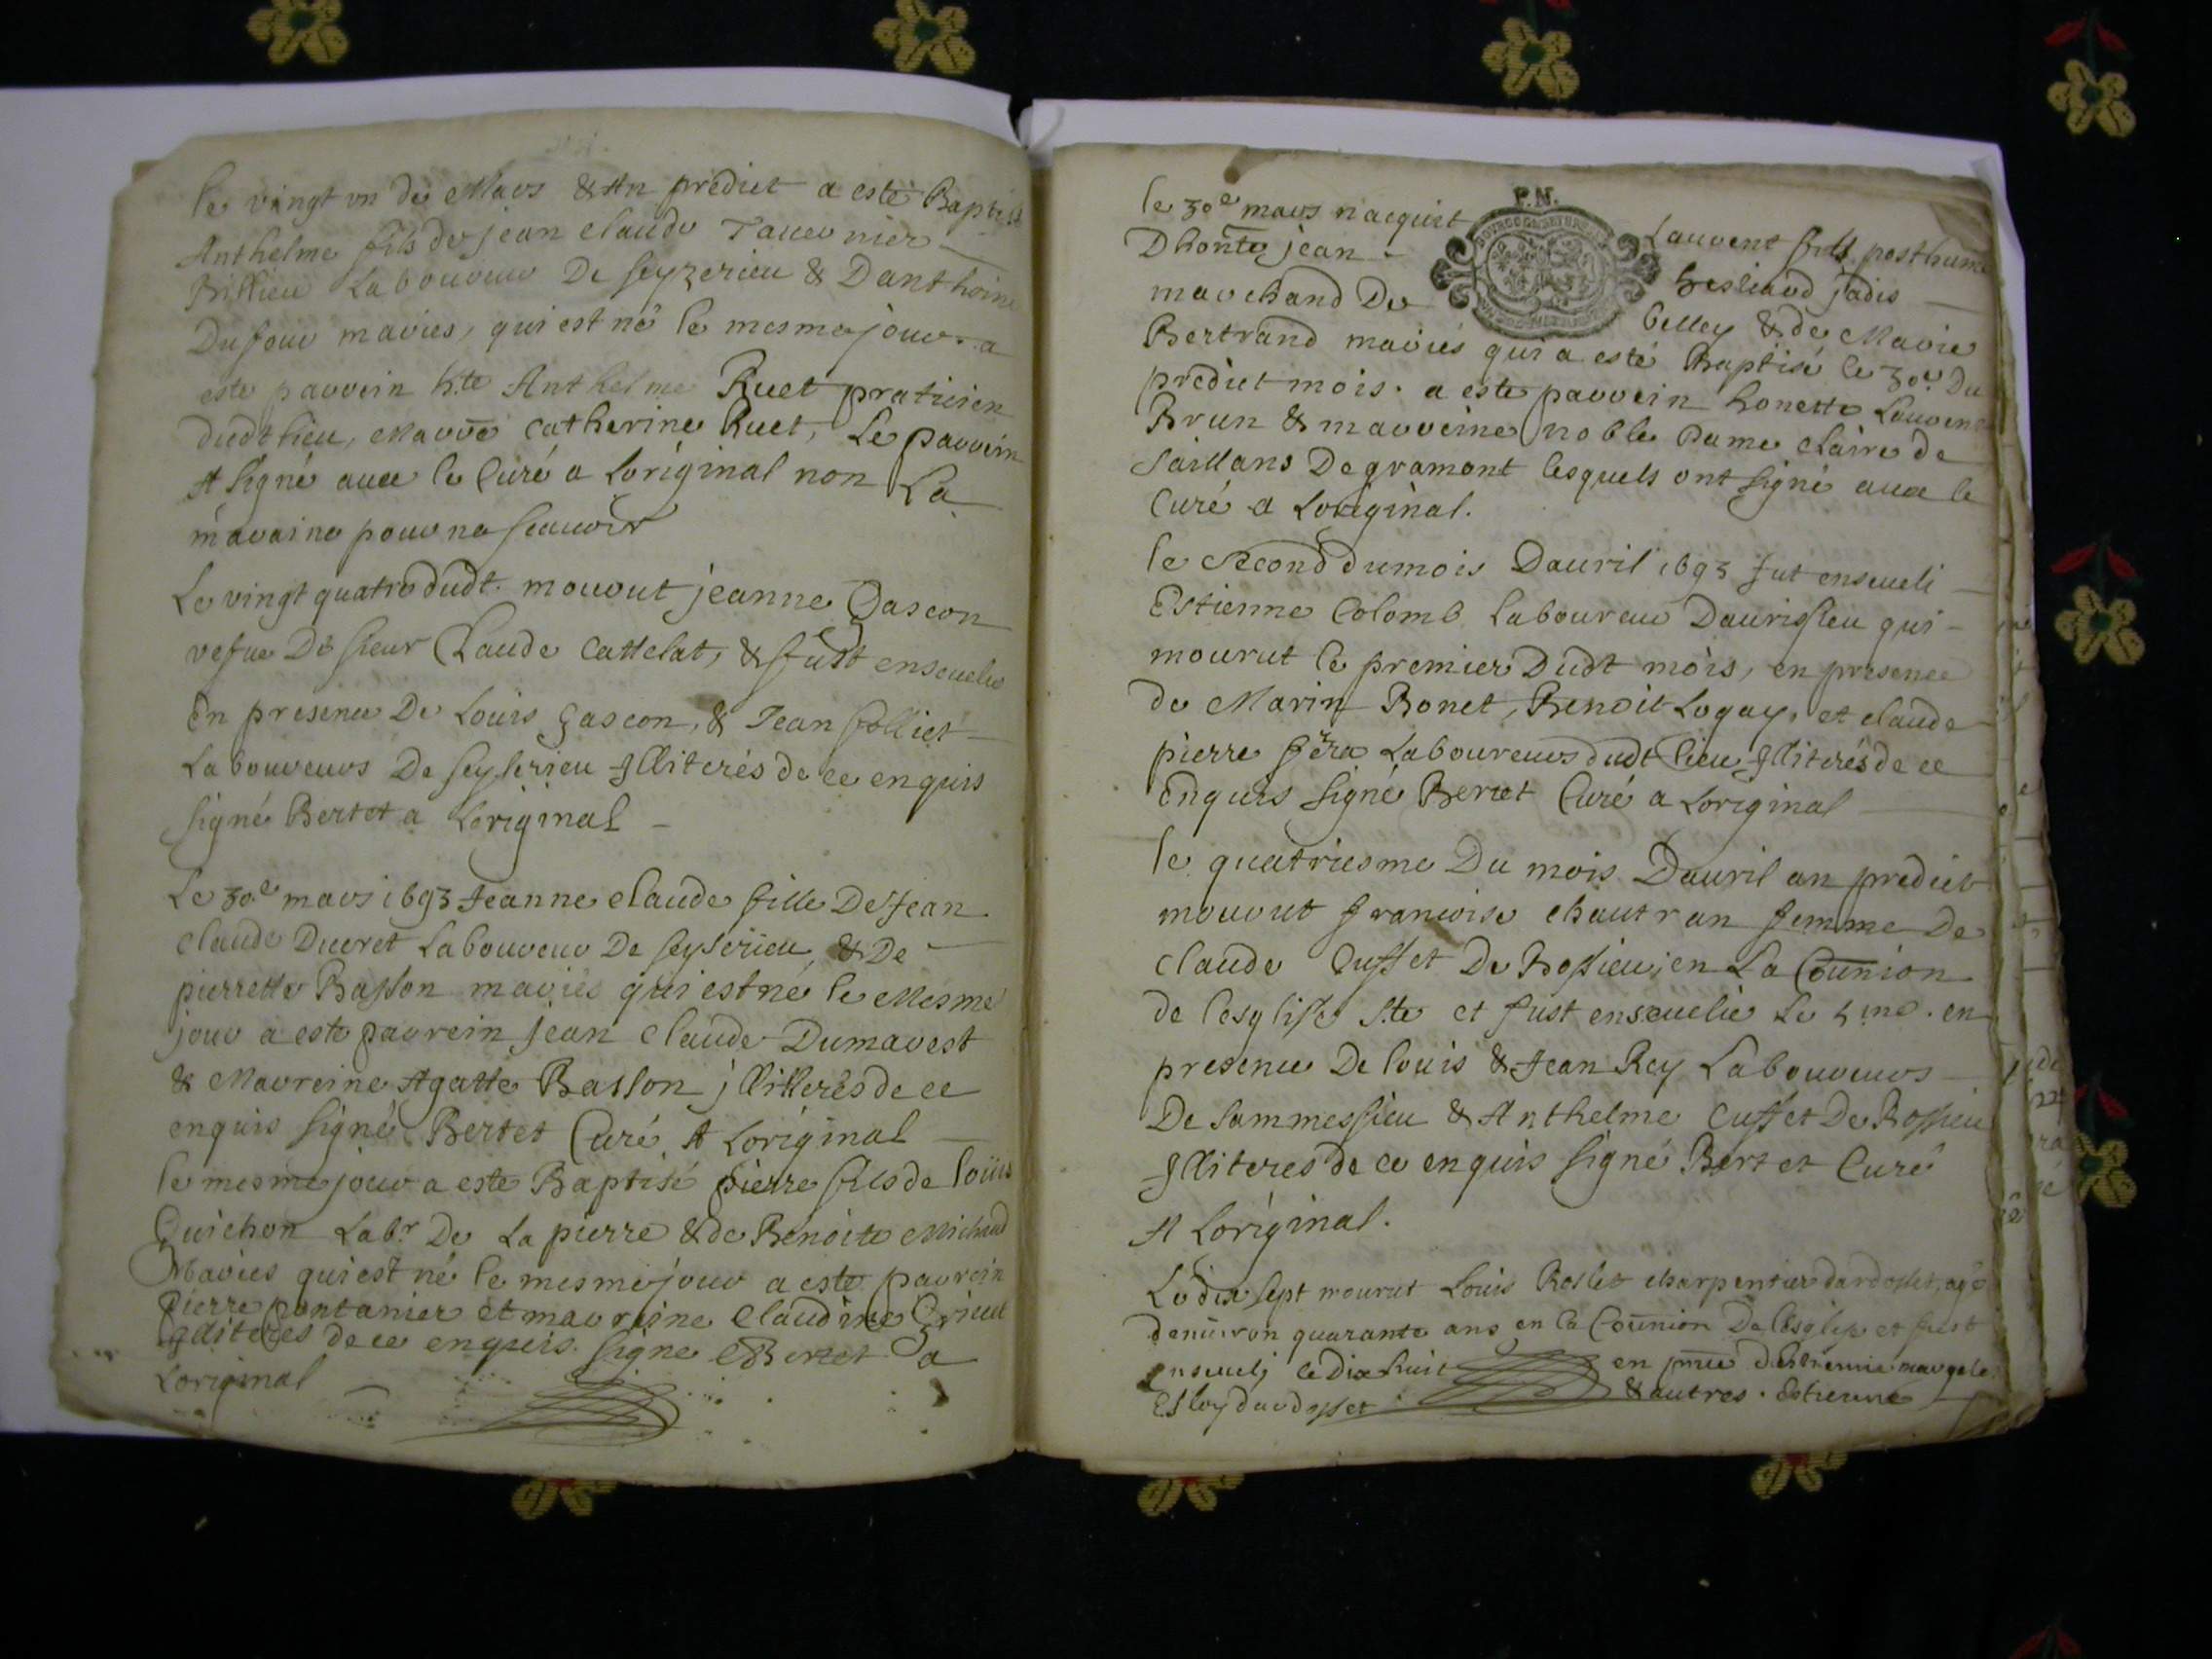 le vingt un de Mars & An predict a esté Baptisé
Anthelme fils de jean claude Tauernier
Billieu Laboureur De seyzerieu & Danthoine
Dufour mariés, qui est né le mesme jour. a
este parrein h.te Anthelme Ruet praticien
dudt lieu, Marre catherine Ruet, Le parrein
A signé auec le Curé a Loriginal non La
maraine pour ne scauoir
Le vingt quatre dudt. mourut jeanne Gascon
vefue De sieur Claude Cattelat, & fust enseuelie
En presence De Louis gascon, & Jean folliet
Laboureurs De seyserieu Illiterés de ce enquis
signé Bertet a Loriginal
Le 30.e mars 1693 Jeanne claude fille De Jean
claude Ducret Laboureur De seyserieu, & De
pierrette Basson mariés qui est né le Mesme
jour a este parrein jean claude Dumarest
& Marreine Agatte Basson jlliterés de ce
enquis signé Bertet Curé A Loriginal
le mesme jour a este Baptisé pierre fils de loüis
Guichon Labr De La pierre & de Benoite Michaud
Mariés qui est né le mesme jour a este parrein
pierre pontanier et marreine claudine
Jlliteres de ce enquis. signe Bertet a
Loriginal
P.N.
le 30e mars nacquit Laurent fils posthume
Dhonte jean hesliaud jadis
marchand De belley & de Marie
Bertrand mariés qui a esté Baptisé le 30e. Du
predict mois. a este parrein honeste Laurent
Brun & marreine noble Dame claire de
saillans De gramont lesquels ont signé auec le
Curé a Loriginal.
le Second du mois Dauril 1693 fut enseueli
Estienne Colomb Laboureur Daurissieu qui
mourut le premier Dudt mois, en presence
de Marin Bonet, Benoit Logay, et claude
pierre Laboureurs dudt lieu Jlliterés de ce
Enquis signé Bertet Curé a Loriginal
le quatriesme Du mois Dauril an predict
mourut francoise chautran femme De
claude Cusset De Rossieu, en La Coũnion
de lesglise Ste et fust enseuelie Le 5me. en
presence De louis & Jean Rey Laboureurs
De sammessieu & Anthelme Cusset De Rossieu
Jlliteres de ce enquis signé Bertet Curé
A Loriginal.
Le dix sept mourut Louis Roslet charpentier dardosset, agé
denuiron quarante ans en la Coũnion De lesglise et fust
enseuelj le dix huit en pnce
Esloy dardosset & autres. Estienne